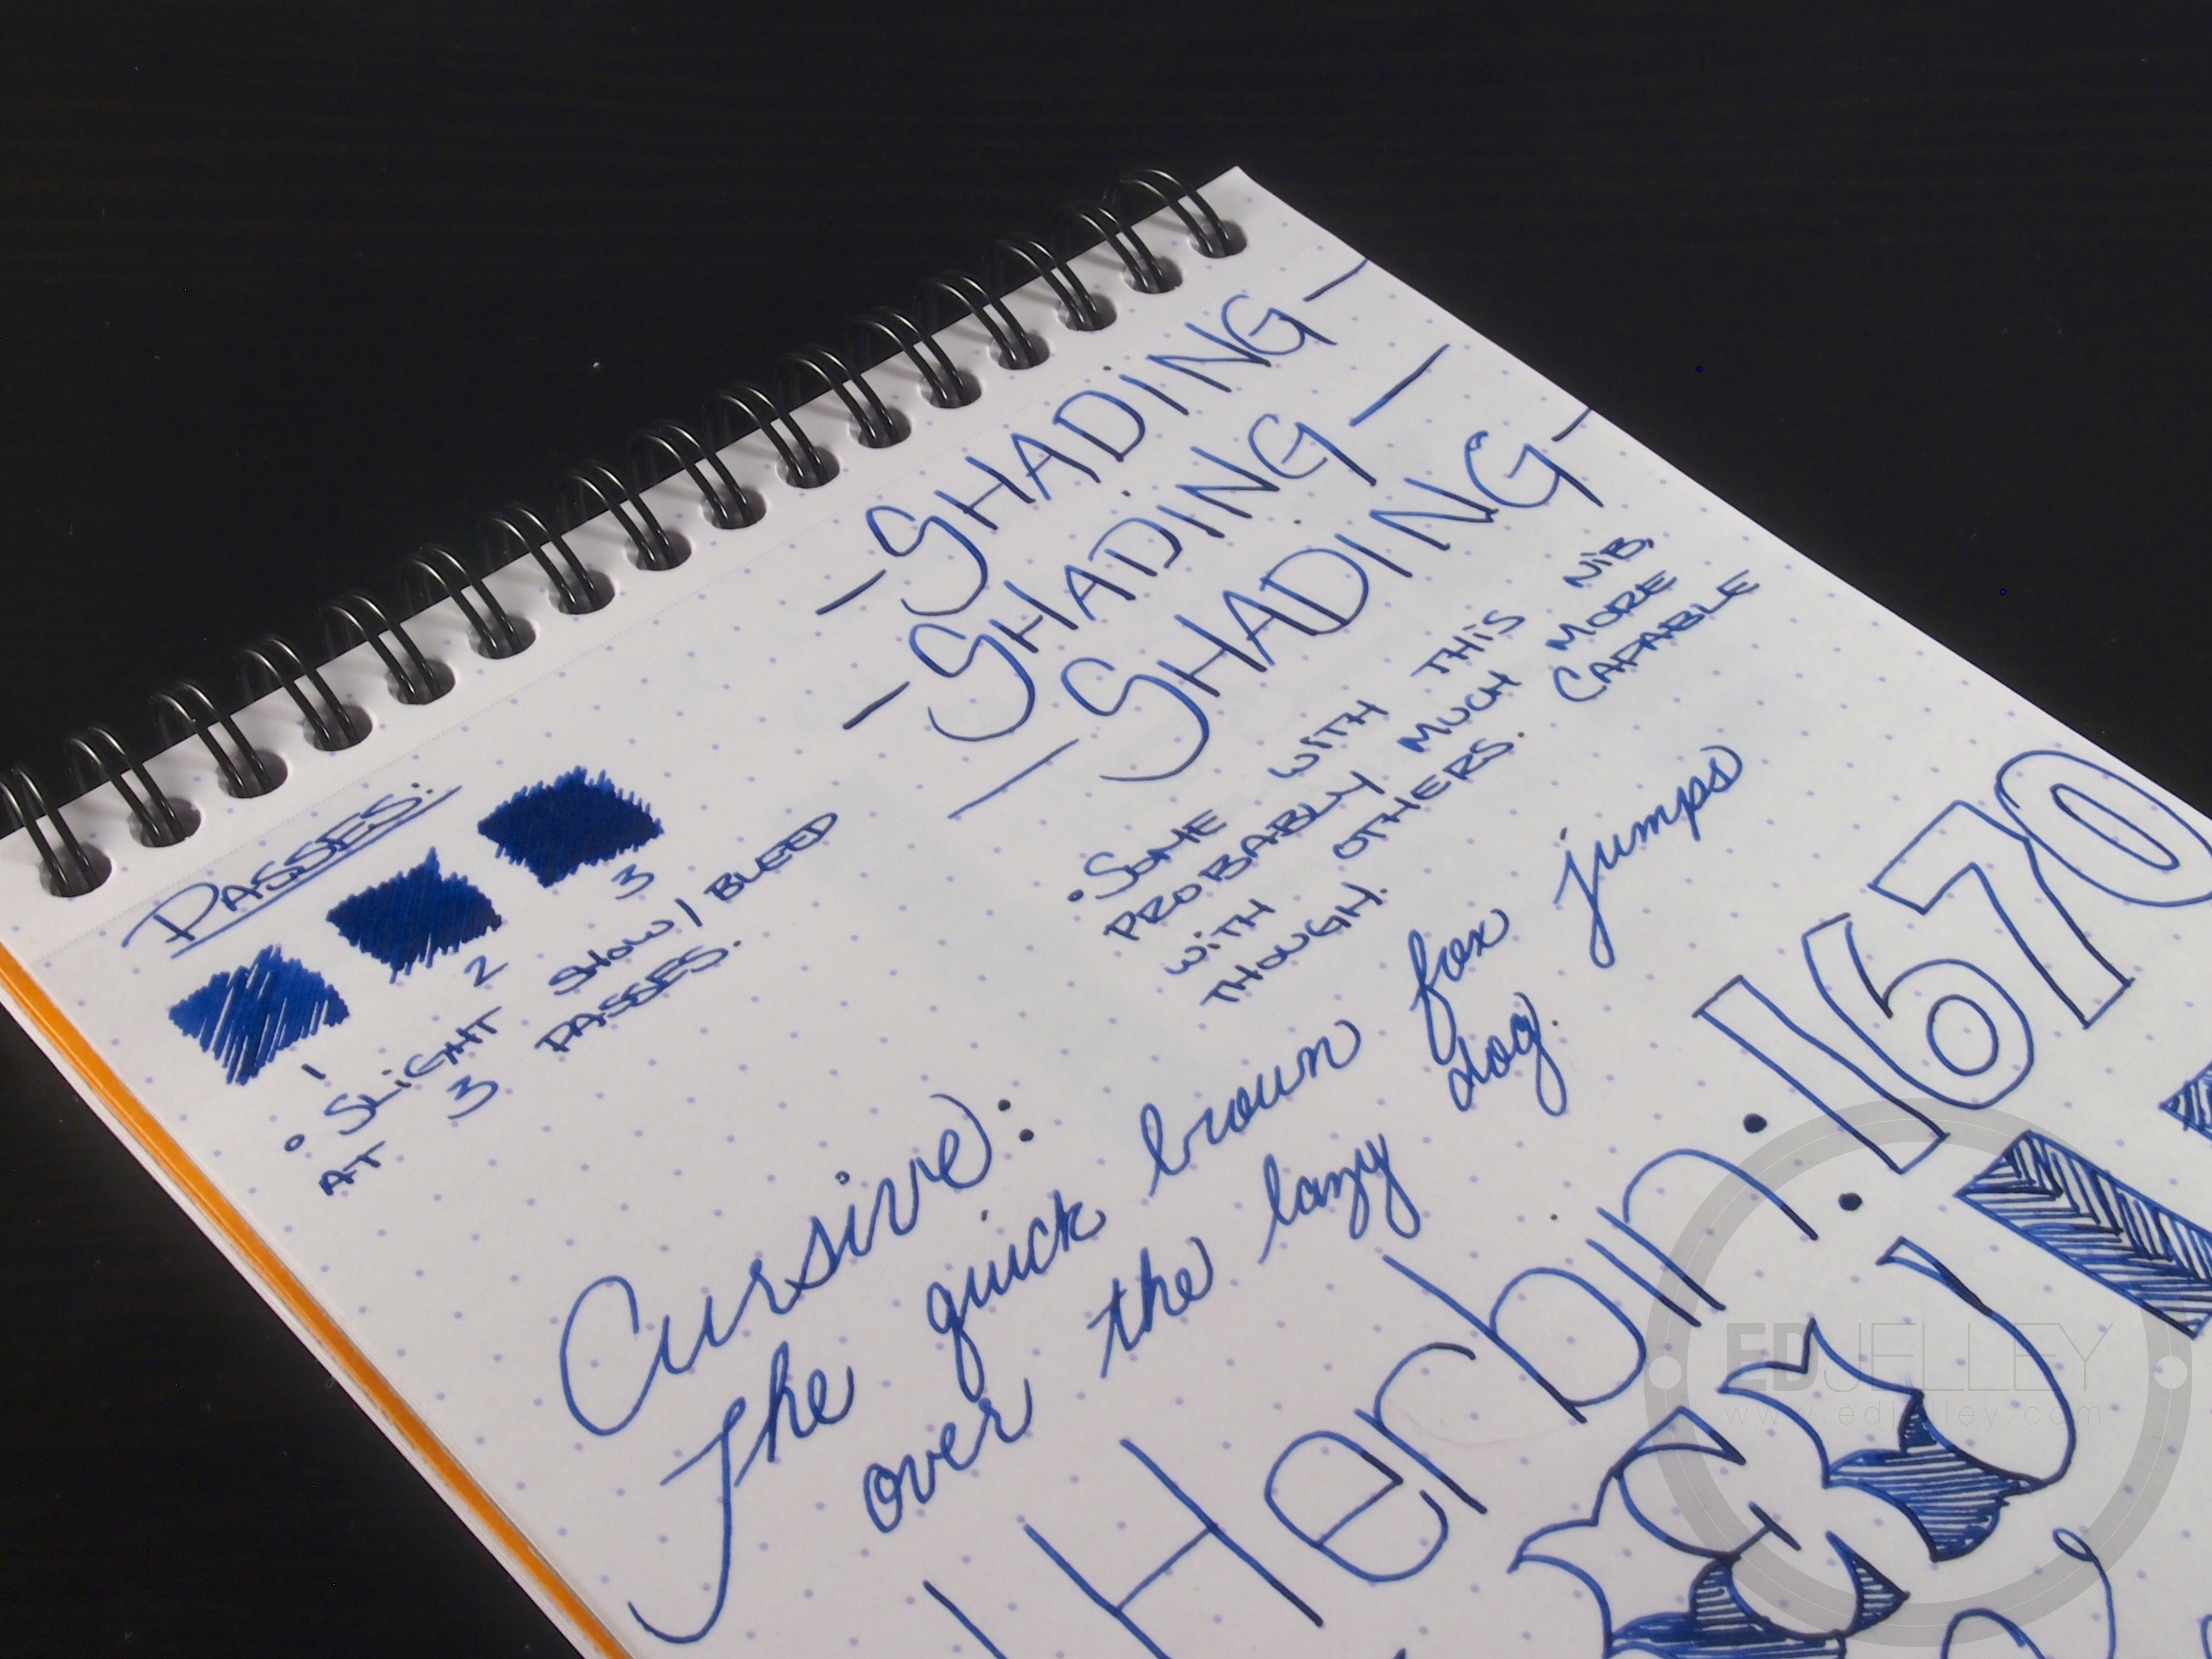 PASSES:
1 2 3
• SLIGHT SHOW/BLEED
AT 3 PASSES.
-SHADING-
-SHADING-
-SHADING-
• SOME WITH THIS NIB,
PROBABLY MUCH MORE
WITH OTHERS. CAPABLE
THOUGH.
Cursive:
The quick brown fox jumps
over the lazy dog.
J Herbin: 1670
EDJELLEY
www.edjelley.com